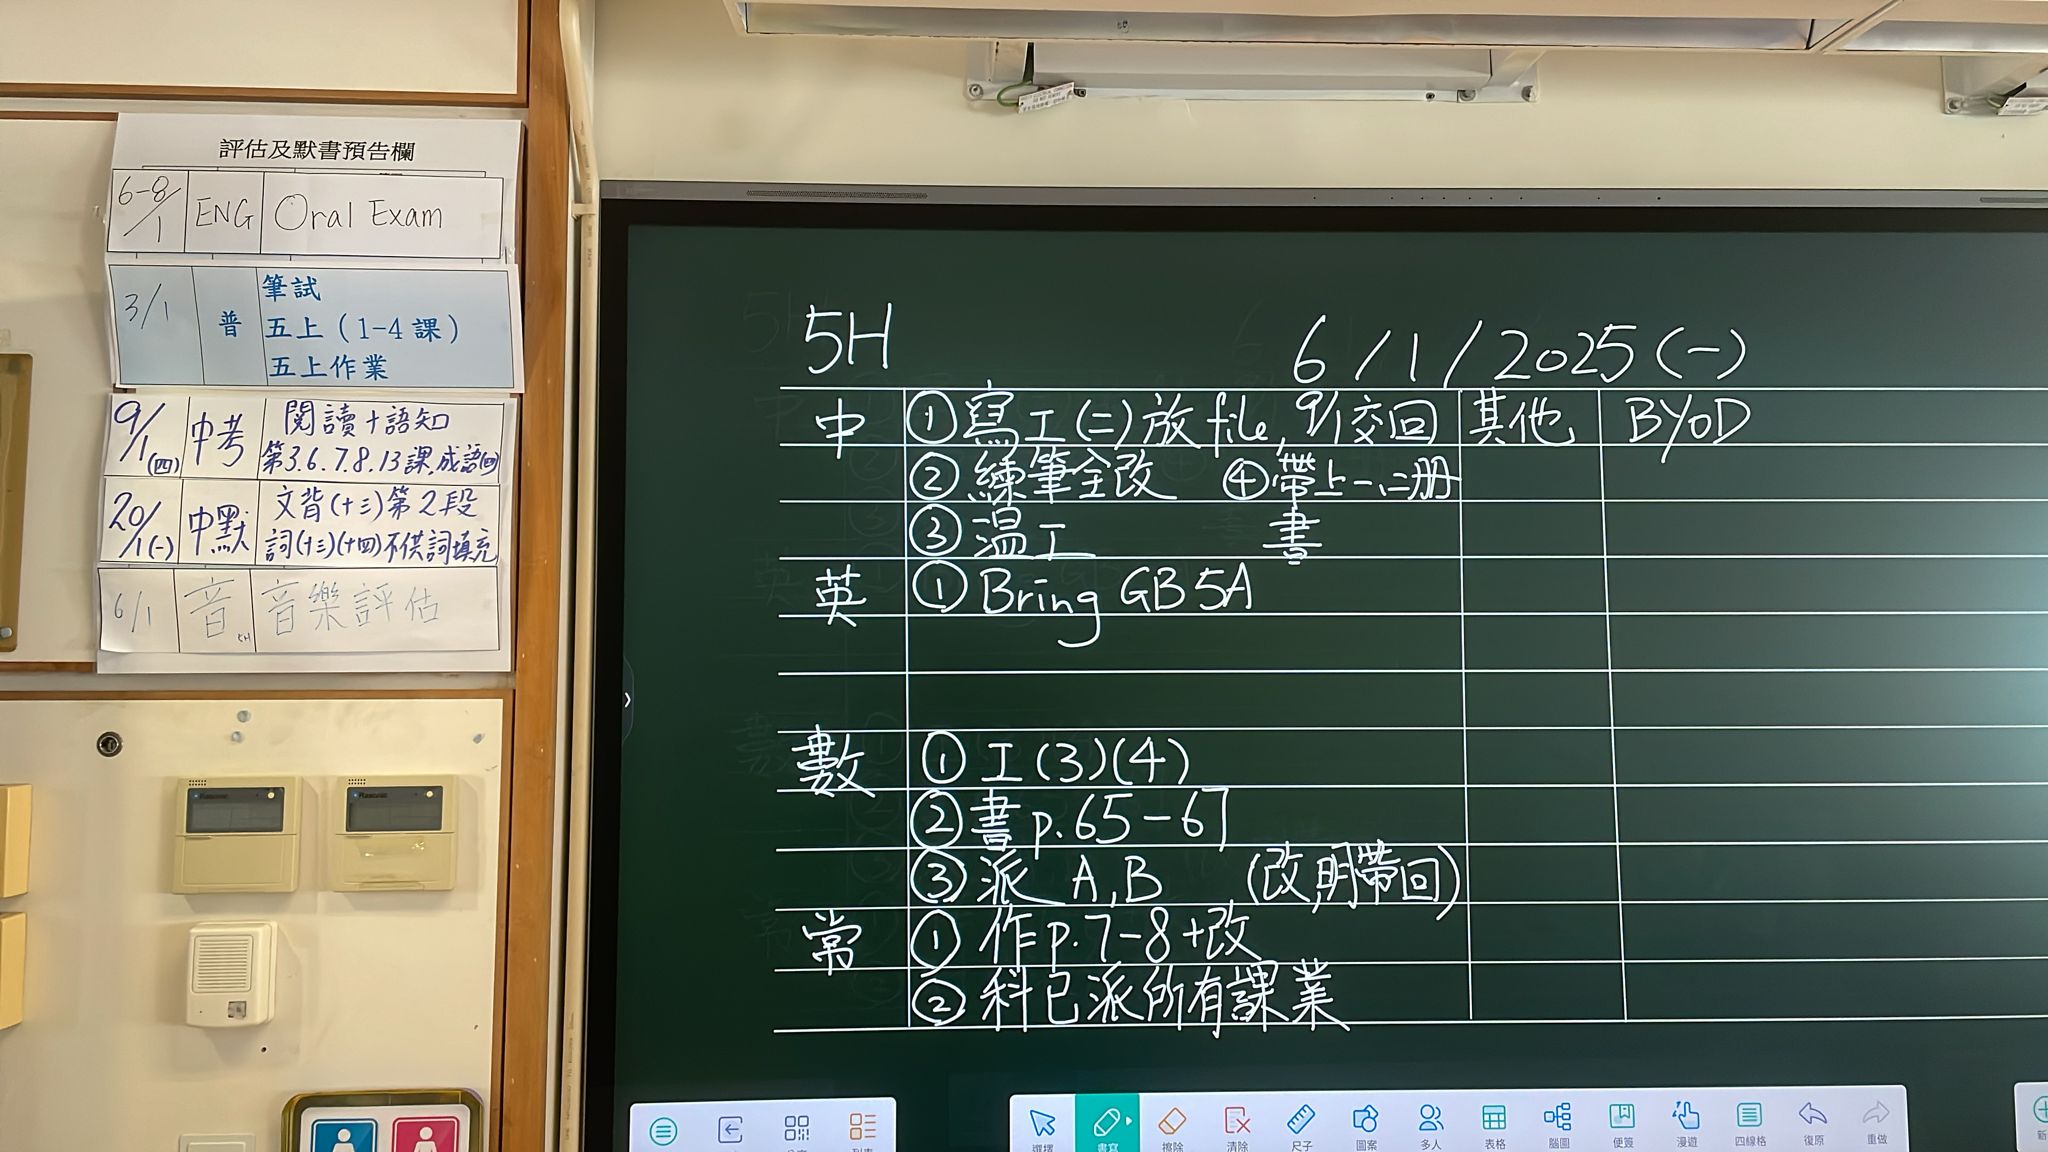 評估及默書預告欄
6-8/1 ENG Oral Exam
3/1 普 筆試
五上（1-4課）
五上作業
9/1(四) 中考 閱讀+語知
第3.6.7.8.13課,成語(四)
20/1(一) 中默 文背(十三)第2段
詞(十三)(十四)不供詞填充
6/1 音 5H 音樂評估
5H 6/1/2025(一)
中 ①寫工(二)放file, 9/1交回 其他 BYOD
②練筆全改 ④帶上一、二冊
③温工 書
英 ①Bring GB5A
數 ①工(3)(4)
②書p.65-67
③派 A,B (改,明帶回)
常 ①作p.7-8+改
②科已派所有課業
選擇 書寫 擦除 清除 尺子 圖案 多人 表格 腦圖 便簽 漫遊 四線格 復原 重做